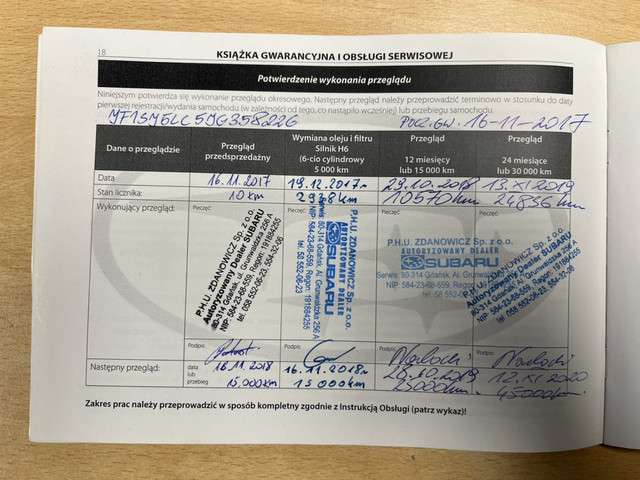 18
KSIĄŻKA GWARANCYJNA I OBSŁUGI SERWISOWEJ
Potwierdzenie wykonania przeglądu
Niniejszym potwierdza się wykonanie przeglądu okresowego. Następny przegląd należy przeprowadzić terminowo w stosunku do daty
pierwszej rejestracji/wydania samochodu (w zależności od tego, co nastąpiło wcześniej) lub przebiegu samochodu.
JF1SM5LC5JG358226 POCZ.GW. 16-11-2017
Dane o przeglądzie
Przegląd
przedsprzedażny
Wymiana oleju i filtru
Silnik H6
(6-cio cylindrowy
5 000 km
Przegląd
12 miesięcy
lub 15 000 km
Przegląd
24 miesiące
lub 30 000 km
Data: 16.11.2017 19.12.2017r 29.10.2018 13.XI 2019
Stan licznika: 10 km 2948km 10570km 24856 km
Wykonujący przegląd:
Pieczęć:
P.H.U. ZDANOWICZ Sp. z o.o.
Autoryzowany Dealer SUBARU
80-314 Gdańsk, ul. Grunwaldzka 256 A
NIP: 584-23-68-559, Regon: 191684255
tel. 058 552-06-23, 554-32-06
Pieczęć:
P.H.U. ZDANOWICZ Sp. z o.o.
AUTORYZOWANY DEALER
SUBARU
Serwis: 80-314 Gdańsk, Al. Grunwaldzka 256 A
NIP: 584-23-68-559, Regon: 191684255
tel. 58 552-06-23
Pieczęć:
P.H.U. ZDANOWICZ Sp. z o.o.
AUTORYZOWANY DEALER
SUBARU
Serwis: 80-314 Gdańsk, Al. Grunwaldzka
NIP: 584-23-68-559, Regon:
tel. 58 552-06-23
Pieczęć:
P.H.U. ZDANOWICZ Sp. z o.o.
Autoryzowany Dealer SUBARU
80-314 Gdańsk, Al. Grunwaldzka 256 A
NIP: 584-23-68-559, Regon: 191684255
Podpis: Podpis: Podpis: Podpis:
Następny przegląd:
data
lub
przebieg
16.11.2018 16.11.2018r 28.10.2019 12.XI 2020
15.000km 15000km 25000km. 45000km.
Zakres prac należy przeprowadzić w sposób kompletny zgodnie z Instrukcją Obsługi (patrz wykaz)!